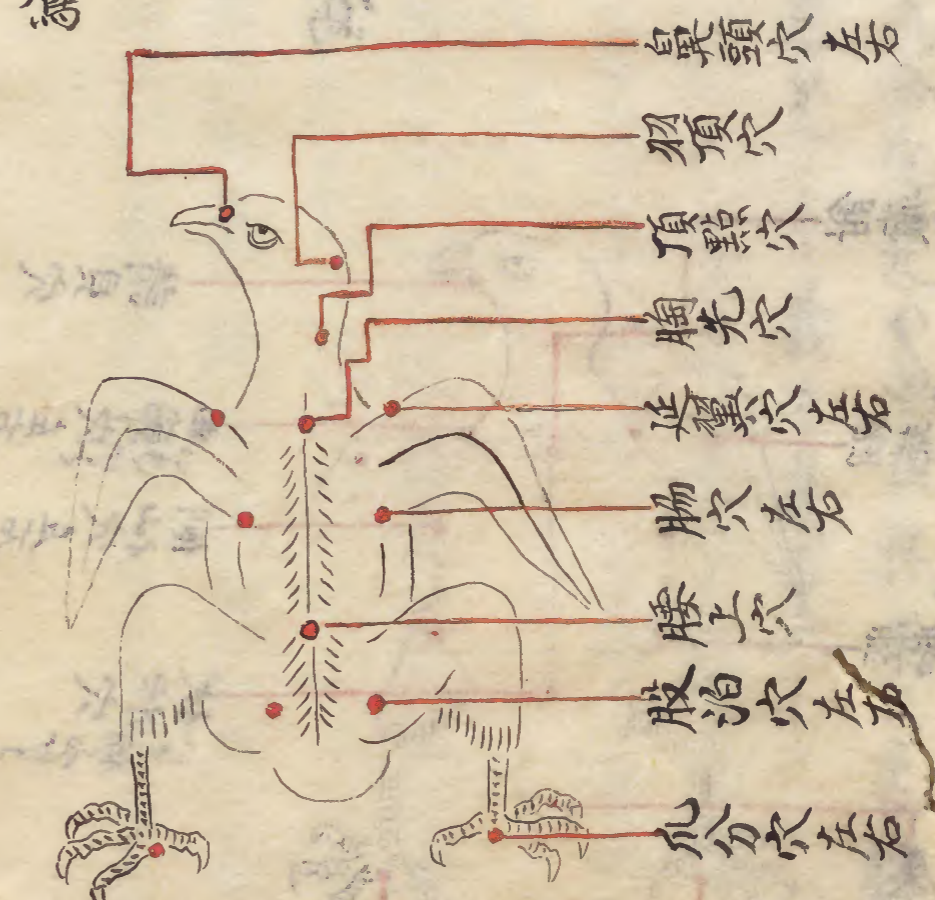 鼻頭穴 左右
頂穴
頂點穴
胸先穴
翼穴 左右
脇穴 左右
腰上穴
股泊穴 左右
爪分穴 左右